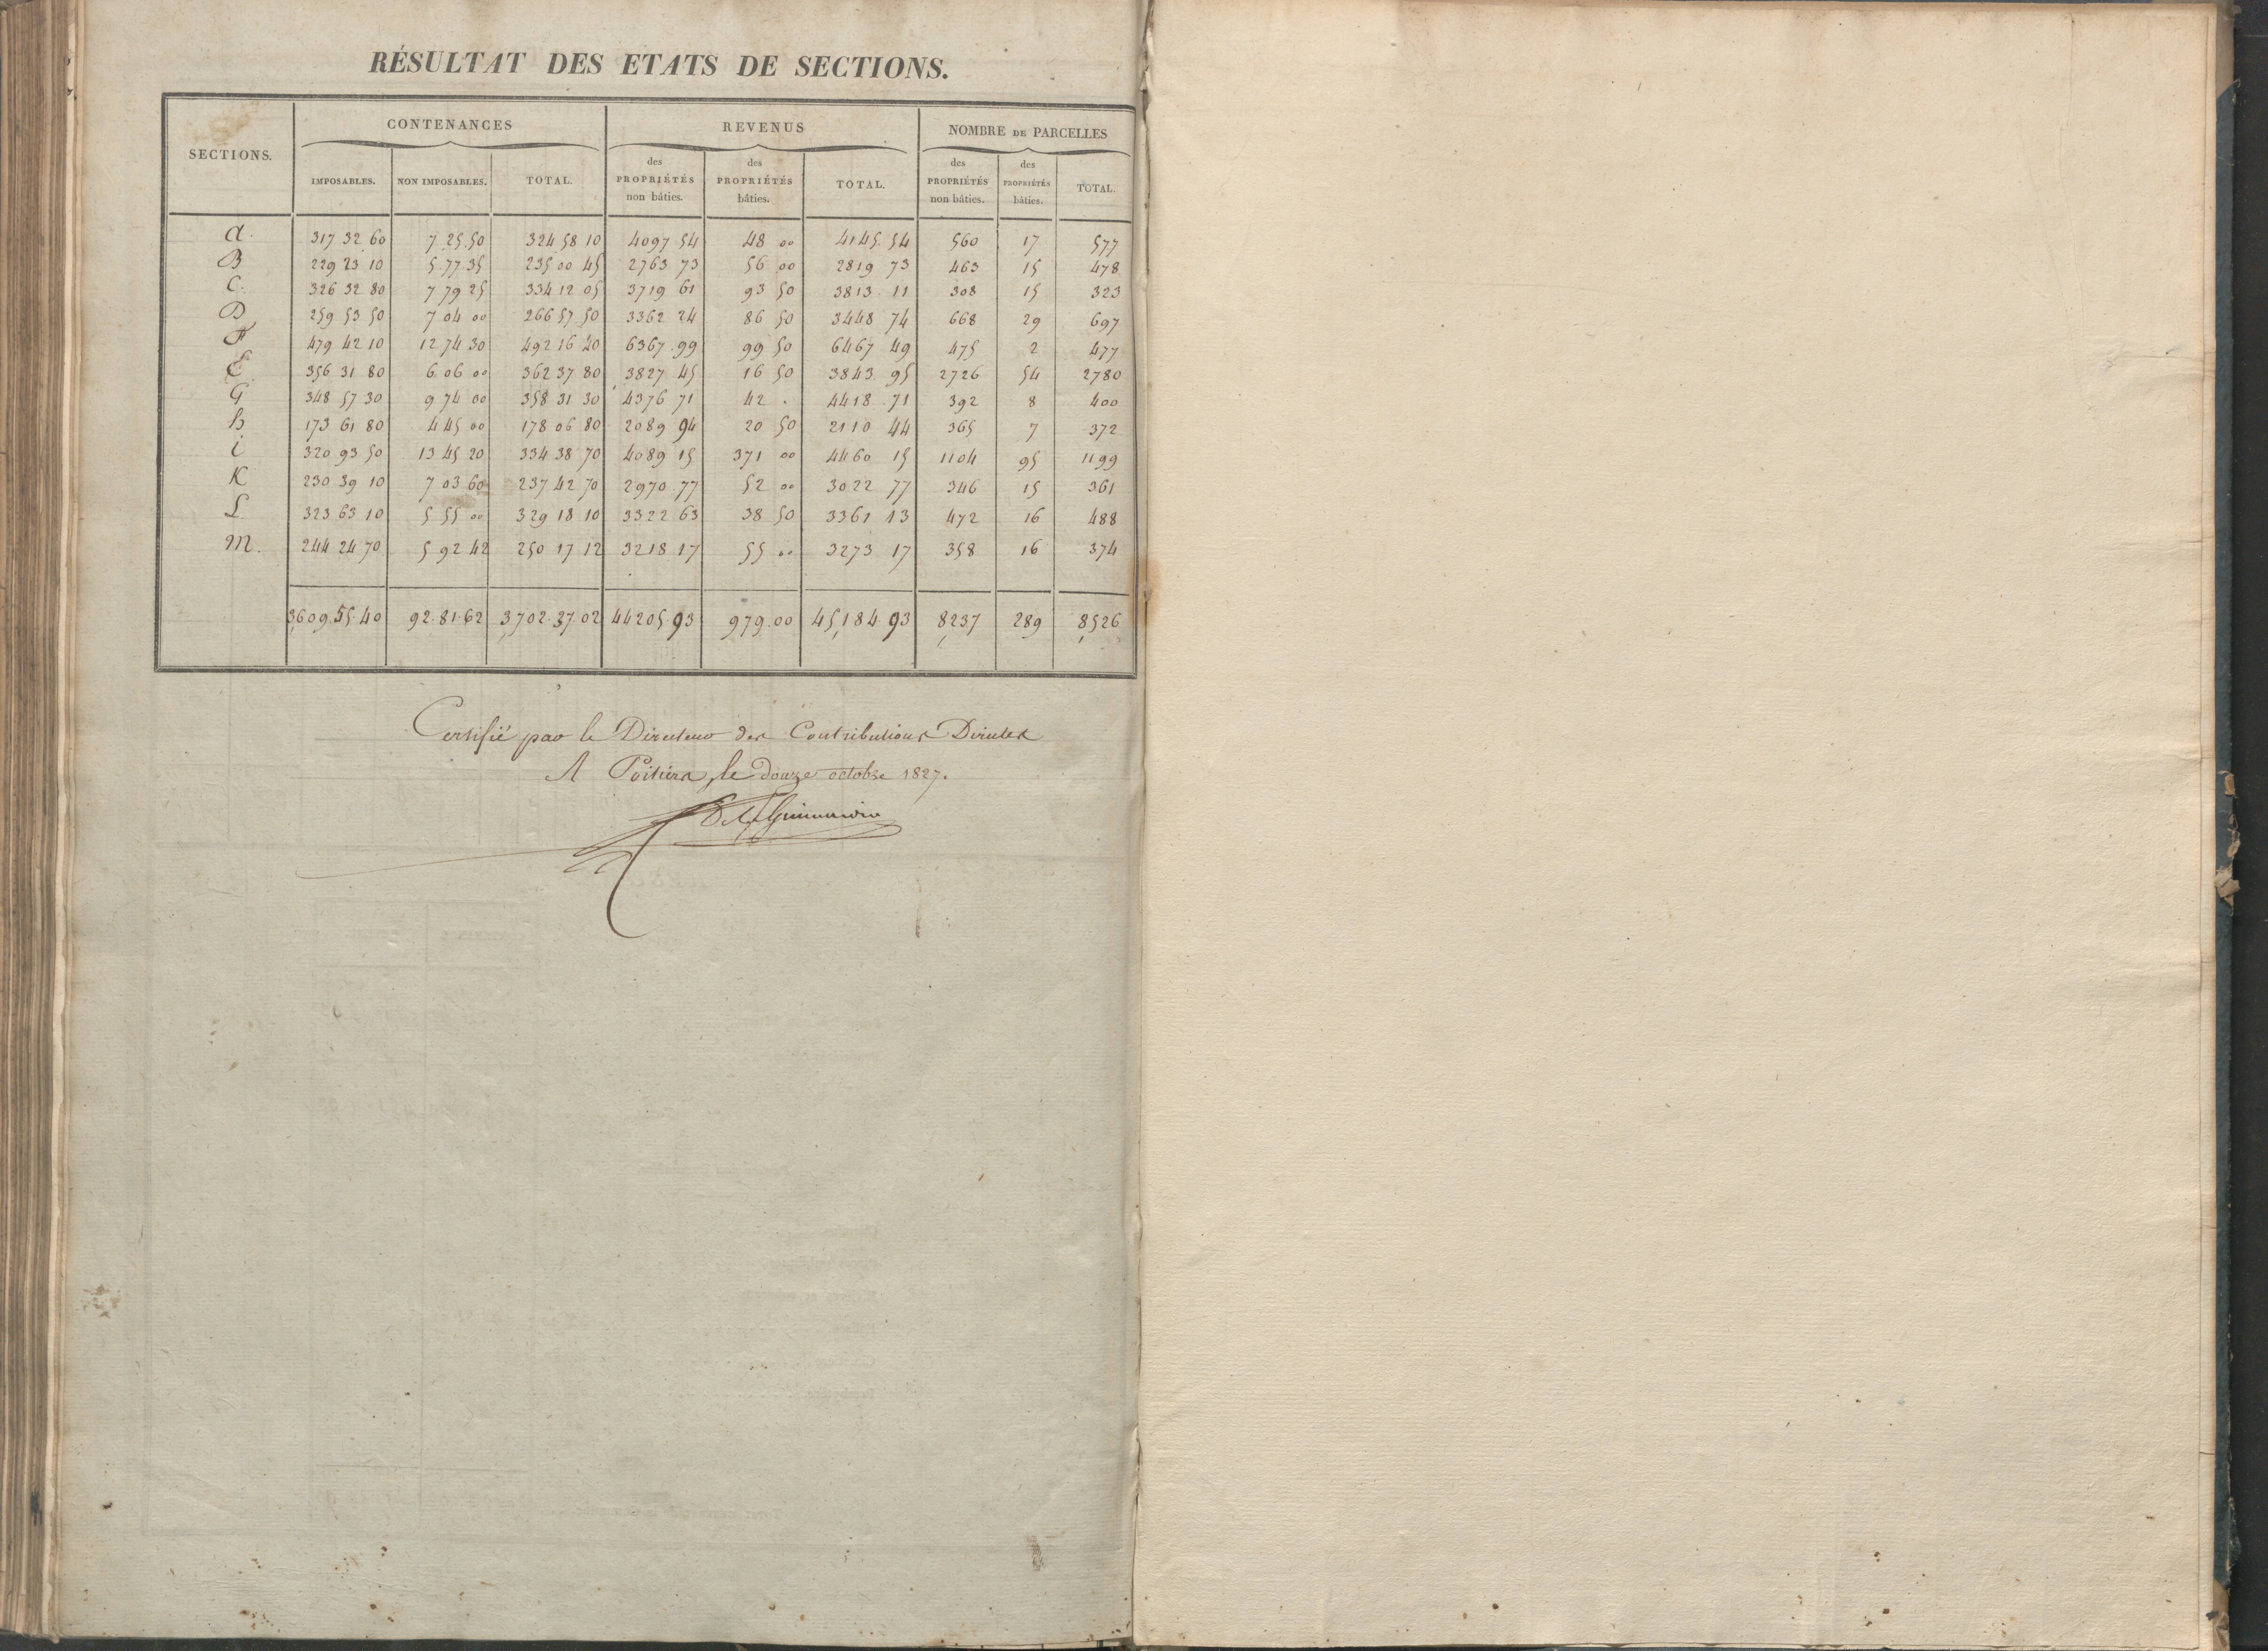 RÉSULTAT DES ETATS DE SECTIONS.
SECTIONS. CONTENANCES REVENUS NOMBRE DE PARCELLES
IMPOSABLES. NON IMPOSABLES. TOTAL. des PROPRIÉTÉS non bâties. des PROPRIÉTÉS bâties. TOTAL. des PROPRIÉTÉS non bâties. des PROPRIÉTÉS bâties. TOTAL.
A. 317 32 60 7 25 50 324 58 10 4097 54 48 00 4145 54 560 17 577
B 229 23 10 5 77 35 235 00 45 2763 73 56 00 2819 73 463 15 478
C. 326 32 80 7 79 25 334 12 05 3719 61 93 50 3813 11 308 15 323
D 259 53 50 7 04 00 266 57 50 3362 24 86 50 3448 74 668 29 697
F 479 42 10 12 74 30 492 16 40 6367 99 99 50 6467 49 475 2 477
E 356 31 80 6 06 00 362 37 80 3827 45 16 50 3843 95 2726 54 2780
G 348 57 30 9 74 00 358 31 30 4376 71 42 . 4418 71 392 8 400
h 173 61 80 4 45 00 178 06 80 2089 94 20 50 2110 44 365 7 372
i 320 93 50 13 45 20 334 38 70 4089 15 371 00 4460 15 1104 95 1199
K 230 39 10 7 03 60 237 42 70 2970 77 52 00 3022 77 346 15 361
L 323 63 10 5 55 00 329 18 10 3322 63 38 50 3361 13 472 16 488
M. 244 24 70 5 92 42 250 17 12 3218 17 55 00 3273 17 358 16 374
3,609.55.40 92.81.62 3,702.37.02 44205.93 979.00 45,184.93 8,237 289 8,526
Certifié par le Directeur des Contributions Directes
A Poitiers, le douze octobre 1827.